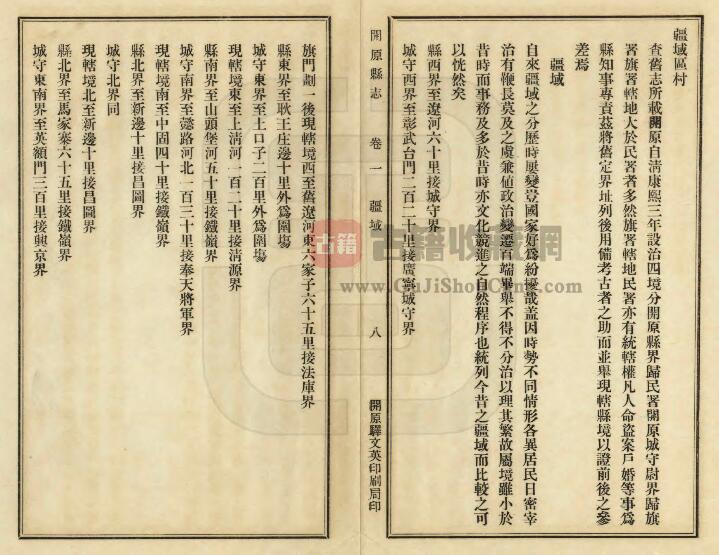 疆域區村
查舊志所載開原自清康熙三年設治四境分開原縣界歸民署開原城守尉界歸旗
署旗署轄地大於民署者多然旗署轄地民署亦有統轄權凡人命盜案戶婚等事爲
縣知事專責茲將舊定界址列後用備考古者之助而並舉現轄縣境以證前後之參
差焉
疆域
自來疆域之分歷時屢變豈國家好爲紛擾哉蓋因時勢不同情形各異居民日密宰
治有鞭長莫及之虞兼値政治變遷百端畢舉不得不分治以理其繁故屬境雖小於
昔時而事務及多於昔時亦文化競進之自然程序也統列今昔之疆域而比較之可
以恍然矣
縣西界至遼河六十里接城守界
城守西界至彰武台門二百二十里接廣寗城守界
開原縣志 卷一 疆域 八 開原驛文英印刷局印
旗門劃一後現轄境西至舊遼河東六家子六十五里接法庫界
縣東界至耿王庄邊十里外爲圍塲
城守東界至土口子二百里外爲圍塲
現轄境東至上淸河一百二十里接淸源界
縣南界至山頭堡河五十里接鐵嶺界
城守南界至懿路河北一百三十里接奉天將軍界
現轄境南至中固四十里接鐵嶺界
縣北界至新邊十里接昌圖界
城守北界同
現轄境北至新邊十里接昌圖界
縣北界至馬家寨六十五里接鐵嶺界
城守東南界至英額門三百里接興京界
古籍 古籍收藏網
www.GuJiShouCang.com